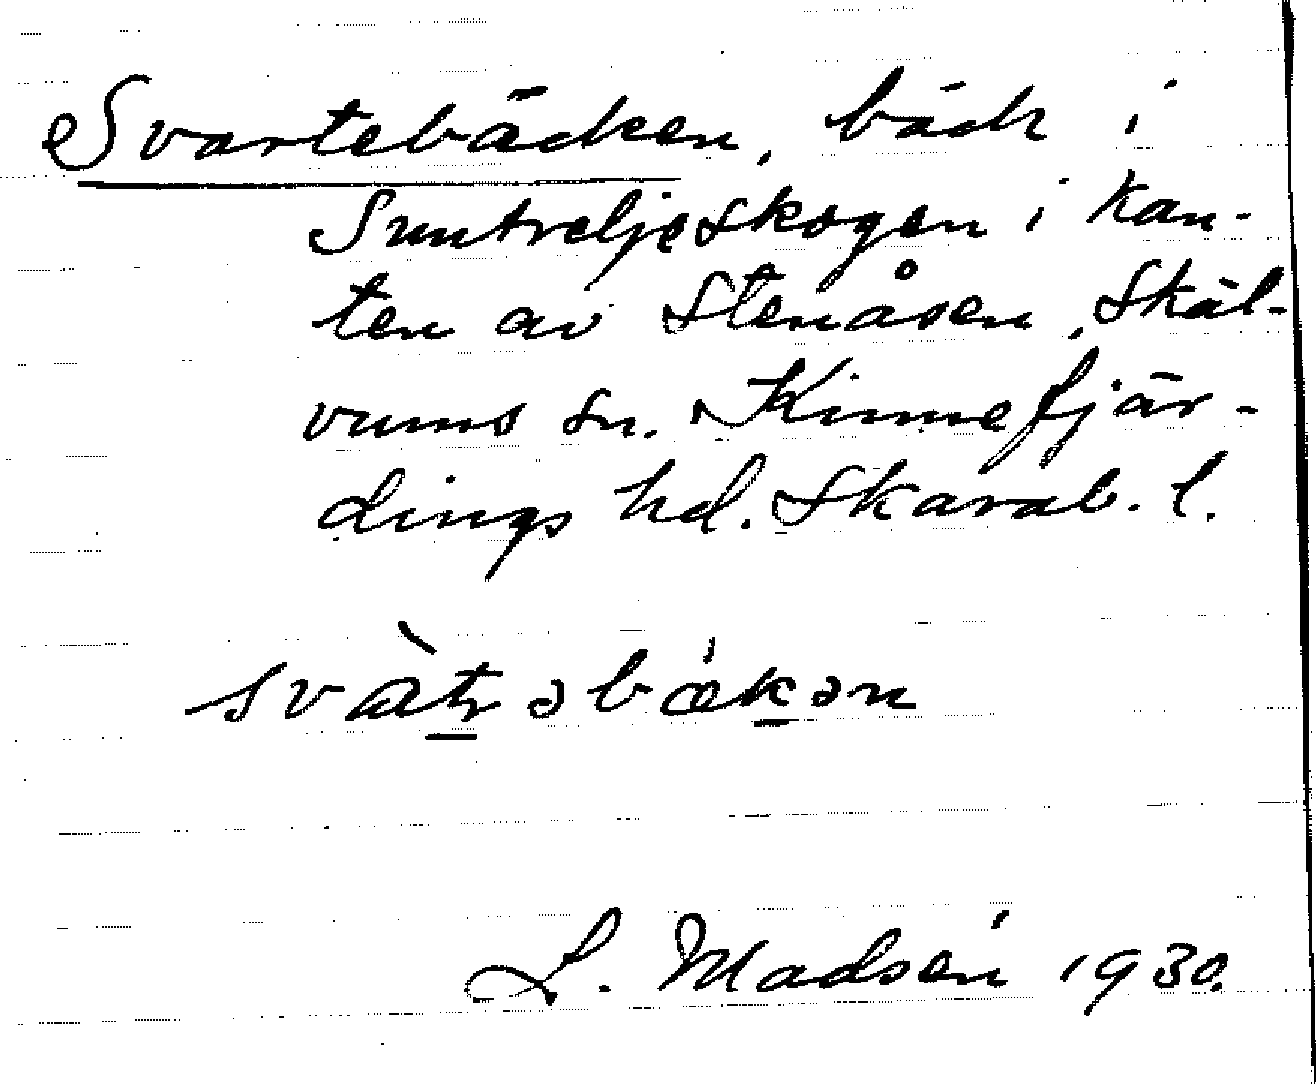 Svartebäcken, bäck i
Suntreljeskogen i kan-
ten av Stenåsen, Skäl-
vums sn. Kinnefjär-
dings hd. Skarab. l.
svàtəbǽkən
L. Madsén 1930.